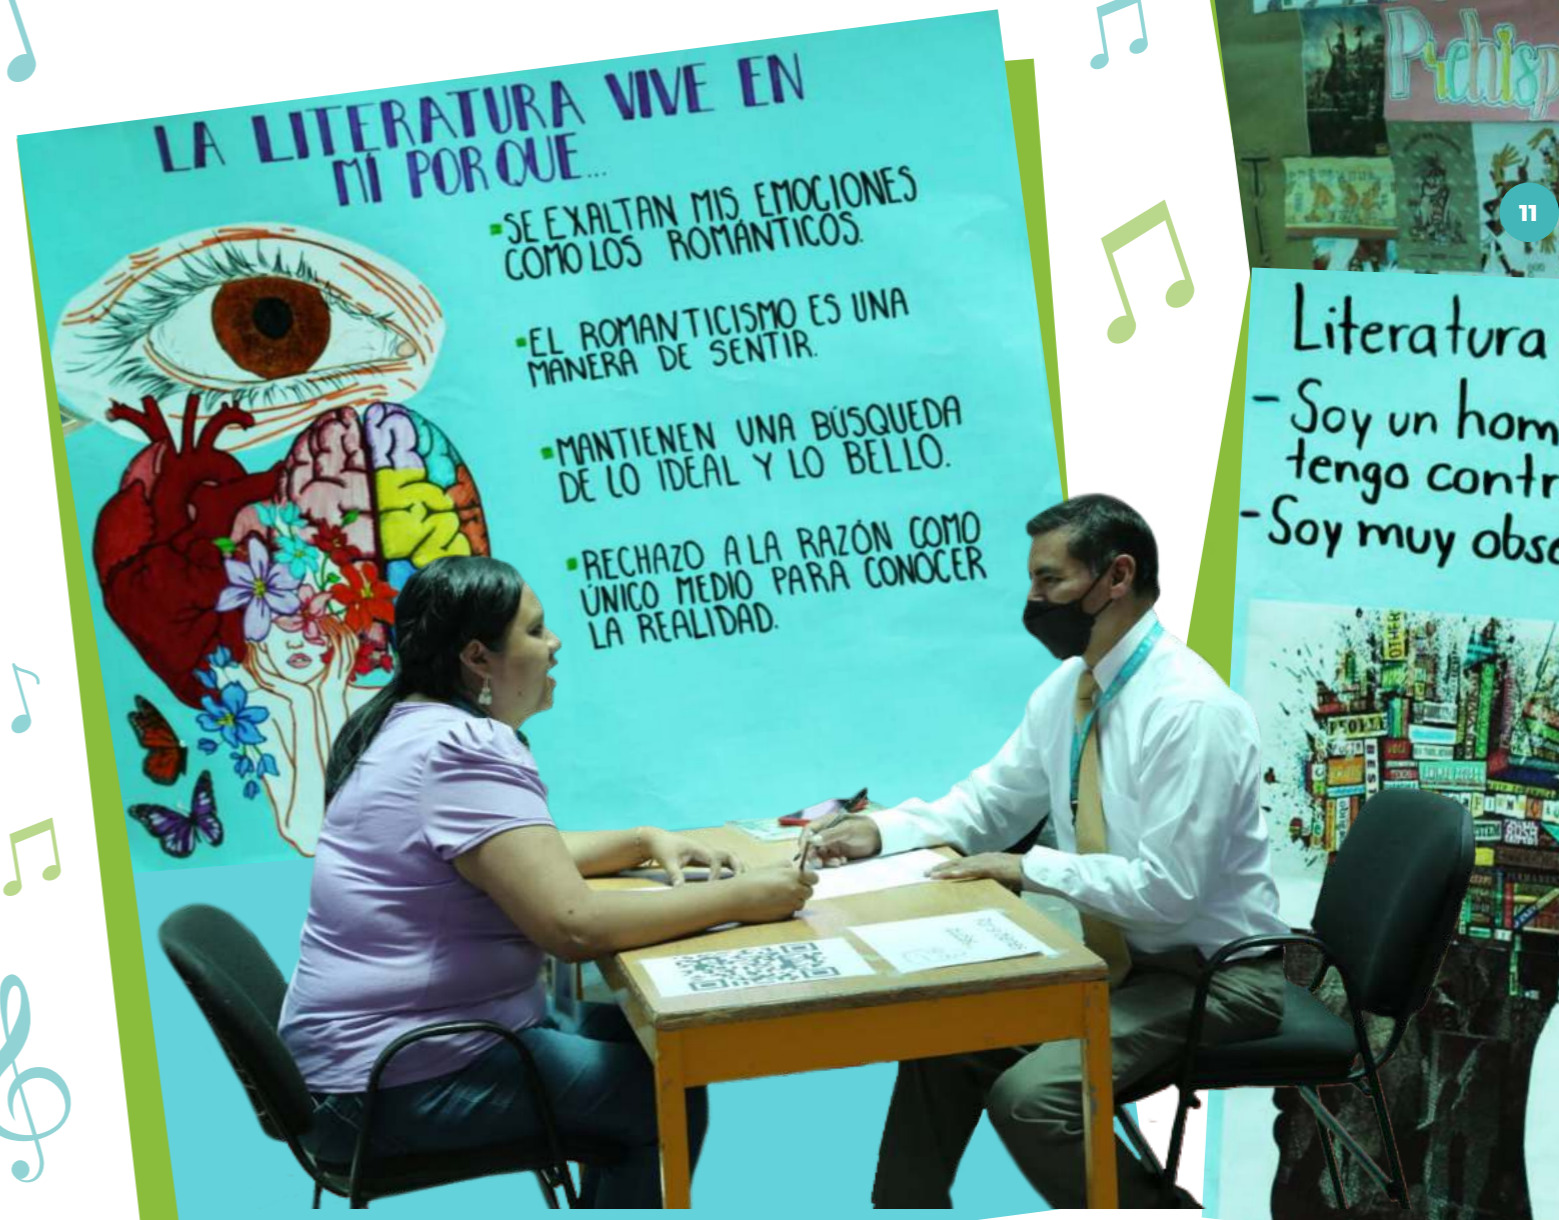 LA LITERATURA VIVE EN
MÍ PORQUE...
SE EXALTAN MIS EMOCIONES
COMO LOS ROMÁNTICOS.
EL ROMANTICISMO ES UNA
MANERA DE SENTIR.
MANTIENEN UNA BÚSQUEDA
DE LO IDEAL Y LO BELLO.
RECHAZO A LA RAZÓN COMO
ÚNICO MEDIO PARA CONOCER
LA REALIDAD.
Prehisp
11
Literatura
- Soy un hom
tengo contr
- Soy muy obse